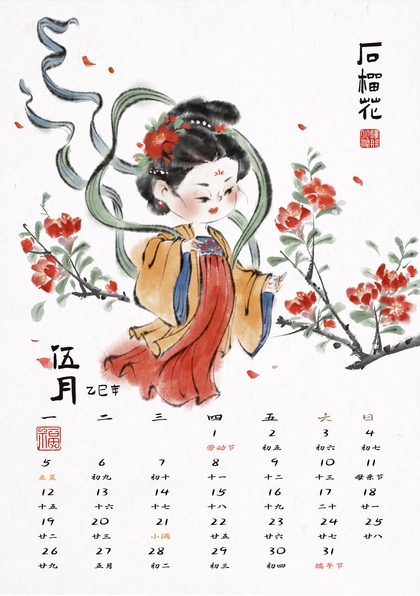 石榴花
伍月
乙巳年
一 二 三 四 五 六 日
福
1 2 3 4
劳动节 初五 初六 初七
5 6 7 8 9 10 11
立夏 初九 初十 十一 十二 十三 母亲节
12 13 14 15 16 17 18
十五 十六 十七 十八 十九 二十 廿一
19 20 21 22 23 24 25
廿二 廿三 小满 廿五 廿六 廿七 廿八
26 27 28 29 30 31
廿九 五月 初二 初三 初四 端午节